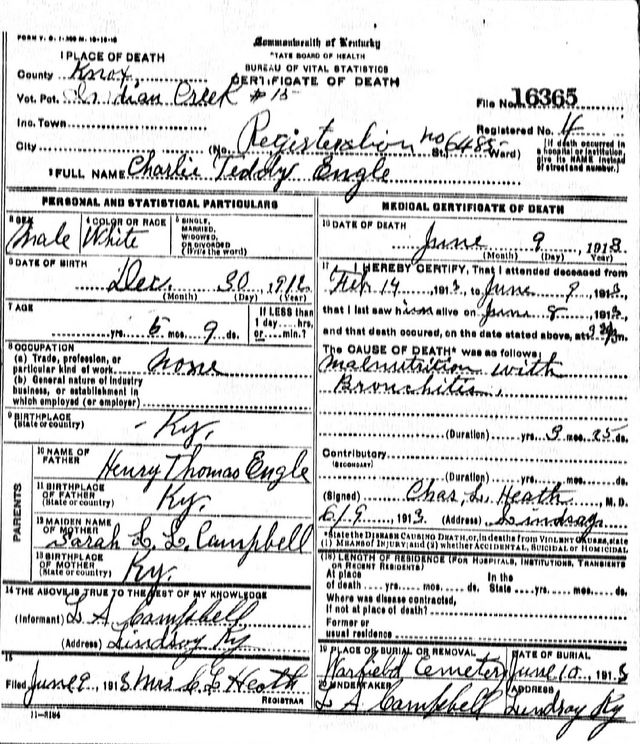 FORM V. S. 1-300 M 10-10-10
Commonwealth of Kentucky
STATE BOARD OF HEALTH
BUREAU OF VITAL STATISTICS
CERTIFICATE OF DEATH
1 PLACE OF DEATH
County Knox
Vot. Pct. Indian Creek #15
File No. 16365
Inc. Town
Registered No. 4
City (No. Registration no 6485 St.; Ward)
[If death occurred in a hospital or institution, give its NAME instead of street and number.]
2 FULL NAME Charlie Teddy Engle
PERSONAL AND STATISTICAL PARTICULARS
3 SEX Male
4 COLOR OR RACE White
5 SINGLE, MARRIED, WIDOWED, OR DIVORCED (Write the word)
6 DATE OF BIRTH
Dec. 30, 1912
(Month) (Day) (Year)
7 AGE
yrs. 5 mos. 9 ds.
If LESS than 1 day hrs. or min.?
8 OCCUPATION
(a) Trade, profession, or particular kind of work none
(b) General nature of industry business, or establishment in which employed (or employer)
9 BIRTHPLACE (State or country) Ky.
PARENTS
10 NAME OF FATHER Henry Thomas Engle
11 BIRTHPLACE OF FATHER (State or country) Ky.
12 MAIDEN NAME OF MOTHER Sarah L. L. Campbell
13 BIRTHPLACE OF MOTHER (State or country) Ky.
14 THE ABOVE IS TRUE TO THE BEST OF MY KNOWLEDGE
(Informant) L A Campbell
(Address) Lindsay Ky
15
Filed June 9, 1913 Mrs C L Heath
REGISTRAR
11-3184
MEDICAL CERTIFICATE OF DEATH
16 DATE OF DEATH
June 9 1913
(Month) (Day) (Year)
17 I HEREBY CERTIFY, That I attended deceased from
Feb 14 1913, to June 9 1913
that I last saw him alive on June 8 1913
and that death occured, on the date stated above, at m.
The CAUSE OF DEATH* was as follows:
Malnutrition with
Bronchitis.
(Duration) yrs. 3 mos. 25 ds.
Contributory
(SECONDARY)
(Duration) yrs. mos. ds.
(Signed) Chas. L. Heath M. D.
6/9 1913 (Address) Lindsay
*State the DISEASE CAUSING DEATH, or, in deaths from VIOLENT CAUSES, state (1) MEANS OF INJURY; and (2) whether ACCIDENTAL, SUICIDAL or HOMICIDAL
(18) LENGTH OF RESIDENCE (FOR HOSPITALS, INSTITUTIONS, TRANSIENTS OR RECENT RESIDENTS)
At place of death yrs. mos. ds. In the State yrs. mos. ds.
Where was disease contracted, If not at place of death?
Former or usual residence
19 PLACE OF BURIAL OR REMOVAL
Warfield Cemetery
DATE OF BURIAL
June 10, 1913
20 UNDERTAKER
L A Campbell
ADDRESS
Lindsay Ky